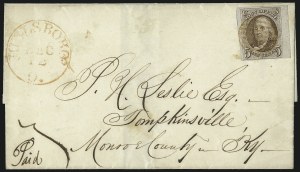 DEC
P. H. Leslie Esq.
Tompkinsville
Monroe County Ky.
Paid